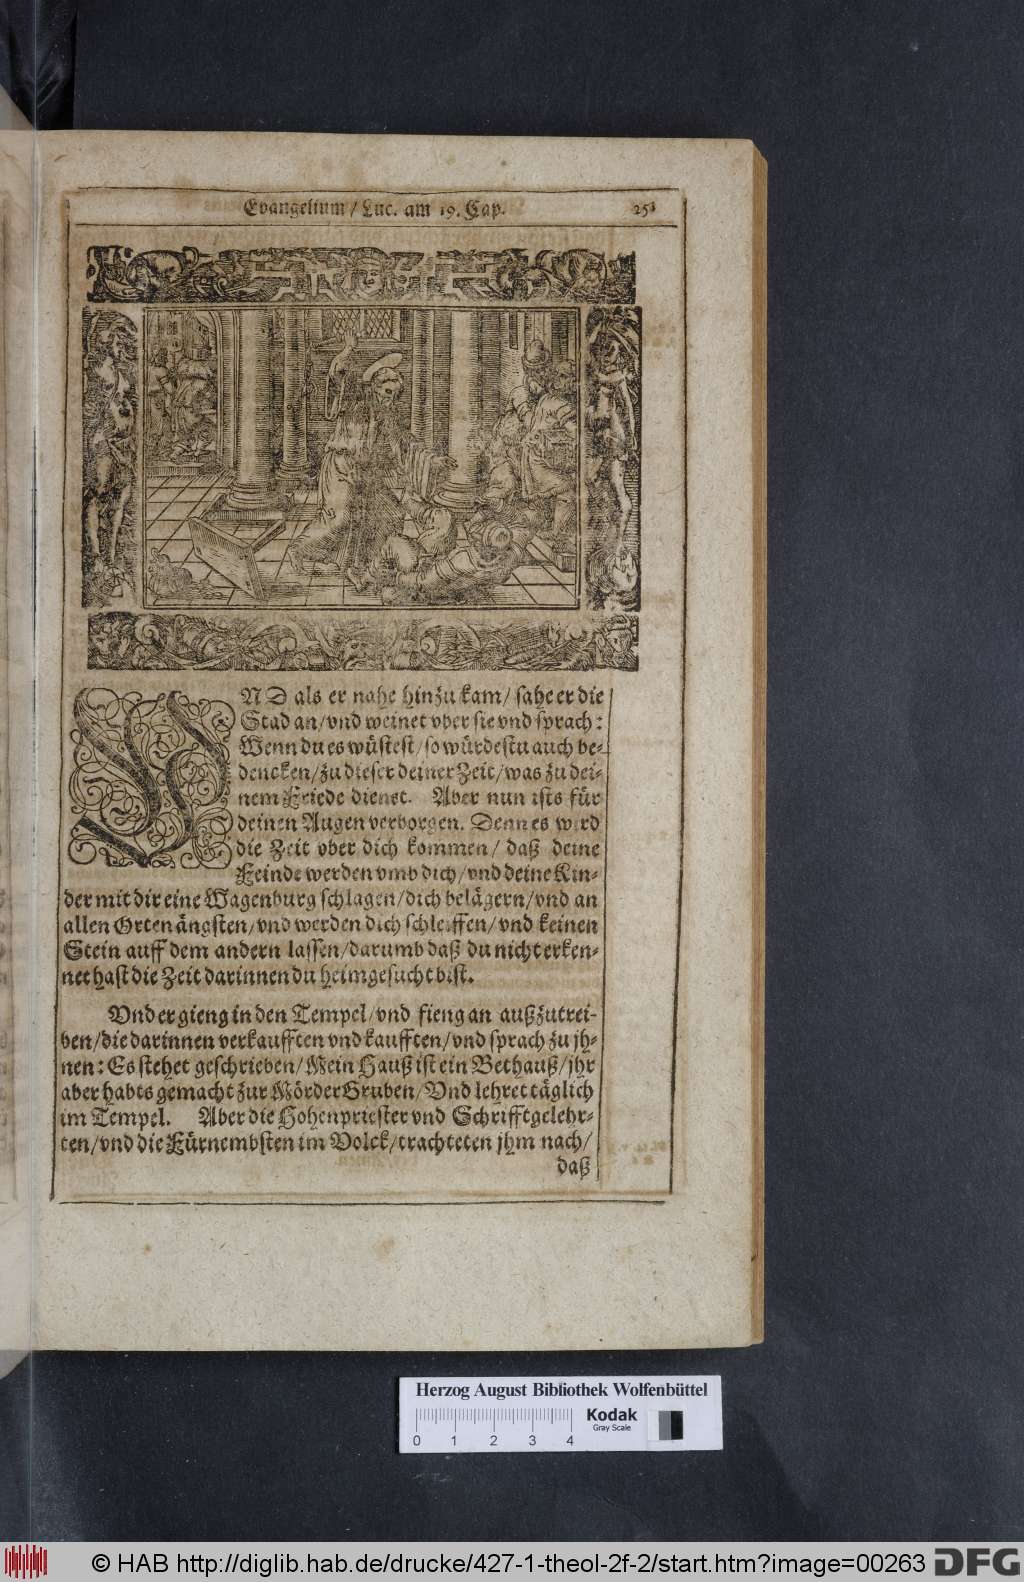 Evangelium / Luc. am 19. Cap. 251
VND als er nahe hinzu kam / sahe er die
Stad an / vnd weinet vber sie vnd sprach:
Wenn du es wüstest / so würdestu auch be-
dencken / zu dieser deiner Zeit / was zu dei-
nem Friede dienet. Aber nun ists für
deinen Augen verborgen. Denn es wird
die Zeit vber dich kommen / daß deine
Feinde werden vmb dich / vnd deine Kin-
der mit dir eine Wagenburg schlagen / dich belägern / vnd an
allen Orten ängsten / vnd werden dich schleiffen / vnd keinen
Stein auff dem andern lassen / darumb daß du nicht erken-
net hast die Zeit darinnen du heimgesucht bist.
Vnd er gieng in den Tempel / vnd fieng an außzutrei-
ben / die darinnen verkaufften vnd kaufften / vnd sprach zu jh-
nen: Es stehet geschrieben / Mein Hauß ist ein Bethauß / jhr
aber habts gemacht zur MörderGruben / Vnd lehret täglich
im Tempel. Aber die Hohenpriester vnd Schrifftgelehr-
ten / vnd die Fürnembsten im Volck / trachteten jhm nach /
daß
Herzog August Bibliothek Wolfenbüttel
Kodak
Gray Scale
0 1 2 3 4
© HAB http://diglib.hab.de/drucke/427-1-theol-2f-2/start.htm?image=00263 DFG